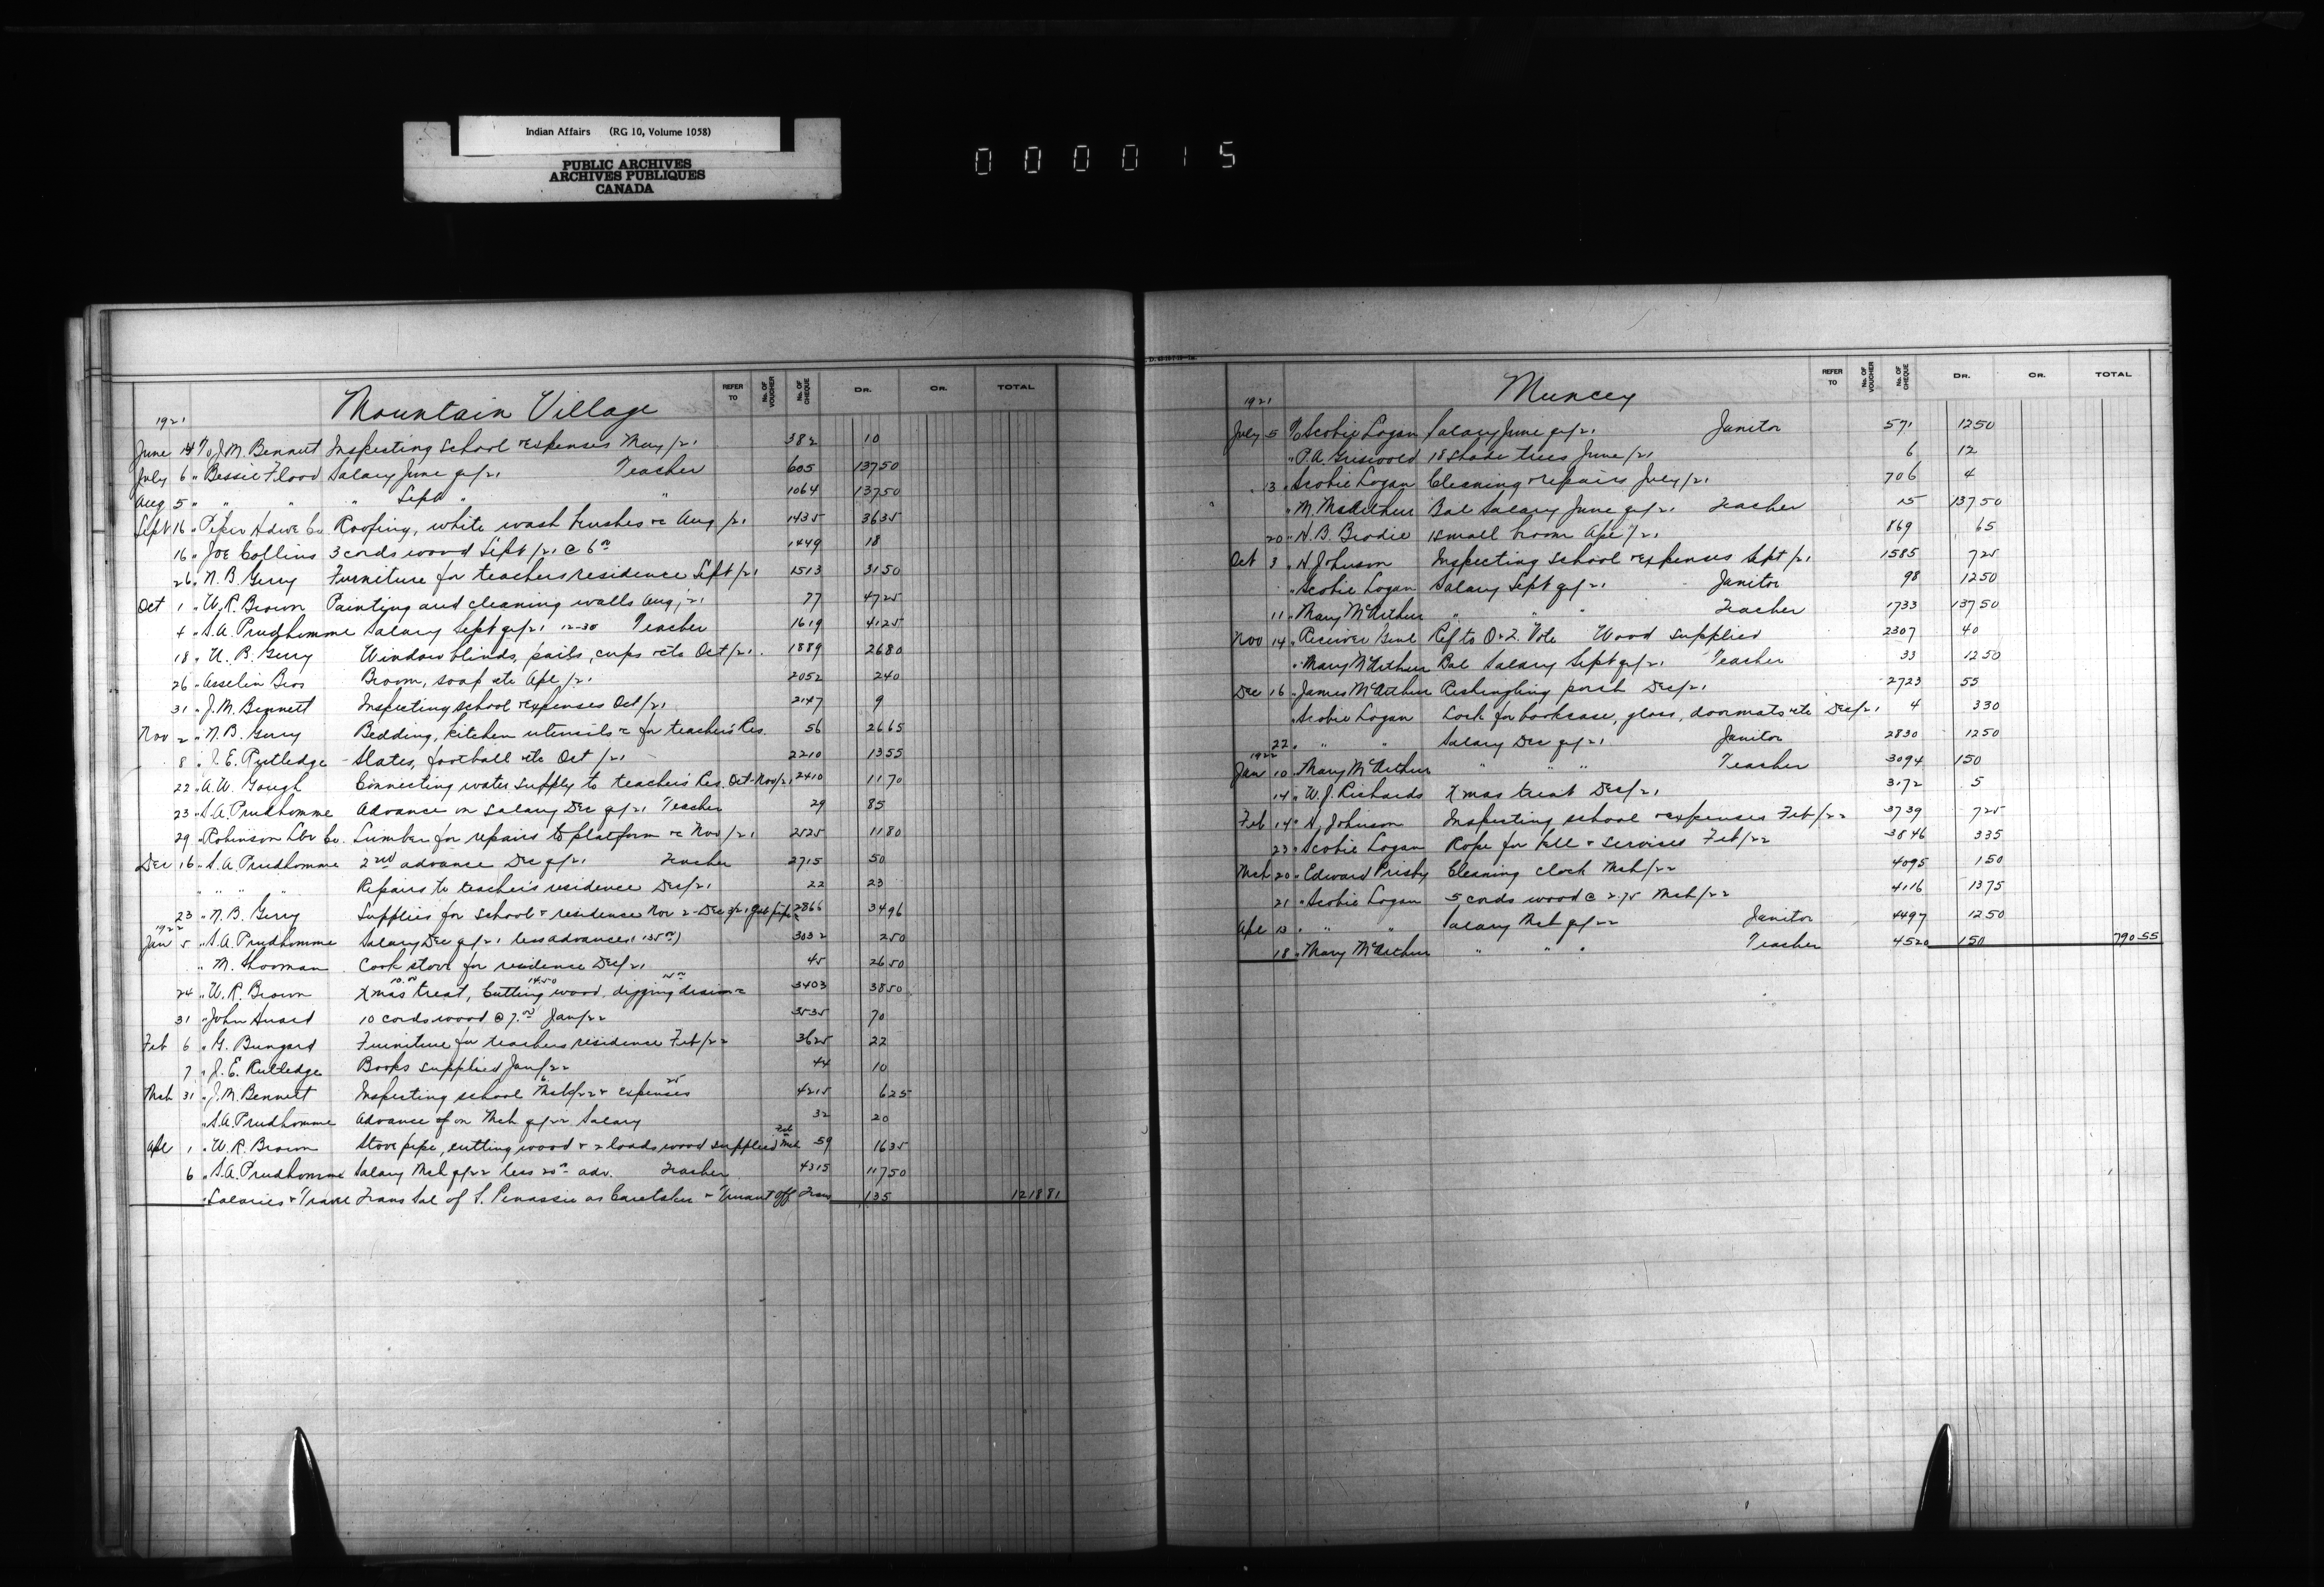 Indian Affairs (RG 10, Volume 1058)
PUBLIC ARCHIVES
ARCHIVES PUBLIQUES
CANADA
000015
Mountain Village
REFER TO No. OF VOUCHER No. OF CHEQUE DR. CR. TOTAL
1921
June 14 To J.M. Bennett Inspecting school & expenses May/21 382 10
July 6 " Bessie Flood Salary June qr/21 Teacher 605 137 50
Aug 5 " " " " Sept " " 1064 137 50
Sept 16 " Hdwe Co Roofing, white wash brushes &c Aug/21 1435 36 35
16 " Joe Collins 3 cords wood Sept/21 @ 6 00 1449 18
26 " N.B. Gerry Furniture for teachers residence Sept/21 1513 31 50
Oct 1 " W.R. Brown Painting and cleaning walls Aug/21 77 47 25
4 " S.A. Prudhomme Salary Sept qr/21 12-30 Teacher 1619 41 25
18 " N.B. Gerry Window blinds, pails, cups etc Oct/21 1889 26 80
26 " Asselin Bros Broom, soap etc Apl/21 2052 2 40
31 " J.M. Bennett Inspecting school & expenses Oct/21 2147 9
Nov 2 " N.B. Gerry Bedding, kitchen utensils &c for teacher's Res. 56 26 65
8 " J.E. Rutledge Slates, football etc Oct/21 2210 13 55
22 " A.W. Gough Connecting water supply to teacher's Res. Oct-Nov/21 2410 11 70
23 " S.A. Prudhomme Advance on salary Dec qr/21 Teacher 29 85
29 " Robinson Lbr Co. Lumber for repairs to platform &c Nov/21 2525 11 80
Dec 16 " S.A. Prudhomme 2nd advance Dec qr/21 Teacher 2715 50
" " " " Repairs to teacher's residence Dec/21 22 23
23 " N.B. Gerry Supplies for school & residence Nov 2-Dec 3/21 2866 34 96
1922
Jan 5 " S.A. Prudhomme Salary Dec qr/21 less advances (135 00) 3032 2 50
" M. Cook stove for residence Dec/21 45 26 50
24 " W.R. Brown Xmas treat, 10.00 Cutting wood, 14.50 digging drain &c 3403 38 50
31 " John 10 cords wood @ 7.00 Jan/22 3535 70
Feb 6 " G. Bungard Furniture for teachers residence Feb/22 3625 22
7 " J.E. Rutledge Books supplied Jan/22 44 10
Mch 31 " J.M. Bennett Inspecting school 6 Mch/22 & expenses 25 4215 6 25
" S.A. Prudhomme Advance on Mch qr/22 Salary 32 20
Apl 1 " W.R. Brown Stove pipe, cutting wood & 2 loads wood supplied Feb Mch 59 16 35
6 " S.A. Prudhomme Salary Mch qr/22 less 20 00 adv. Teacher 4315 117 50
" Salaries & Travel Trans Sal of S. Penassie as Caretaker & Truant Off Trans 135 1218 81
Muncey
REFER TO No. OF VOUCHER No. OF CHEQUE DR. CR. TOTAL
1921
July 5 To Scobie Logan Salary June qr/21 Janitor 571 12 50
" P.A. Griswold 18 shade trees June/21 6 12
13 " Scobie Logan Cleaning & repairs July/21 706 4
" M. McArthur Bal Salary June qr/21 Teacher 15 137 50
20 " N.B. Brodie 1 small broom Apl/21 869 65
Oct 3 " H. Johnson Inspecting school & expenses Sept/21 1585 7 25
" Scobie Logan Salary Sept qr/21 Janitor 98 12 50
11 " Mary McArthur " " " Teacher 1733 137 50
Nov 14 " Receiver Genl Ref to O & Q. Vote Wood supplied 2307 40
" Mary McArthur Bal Salary Sept qr/21 Teacher 33 12 50
Dec 16 " James McArthur Reshingling porch Dec/21 2723 55
" Scobie Logan Lock for bookcase, glass, doormats etc Dec/21 4 3 30
22 " " " Salary Dec qr/21 Janitor 2830 12 50
1922
Jan 10 " Mary McArthur " " " Teacher 3094 150
14 " W.J. Richards Xmas treat Dec/21 3172 5
Feb 14 " H. Johnson Inspecting school & expenses Feb/22 3739 7 25
23 " Scobie Logan Rope for bell & services Feb/22 3846 3 35
Mch 20 " Edward Prisby Cleaning clock Mch/22 4095 1 50
21 " Scobie Logan 5 cords wood @ 2.75 Mch/22 4116 13 75
Apl 13 " " " Salary Mch qr/22 Janitor 4497 12 50
18 " Mary McArthur " " " Teacher 4520 150 790 55